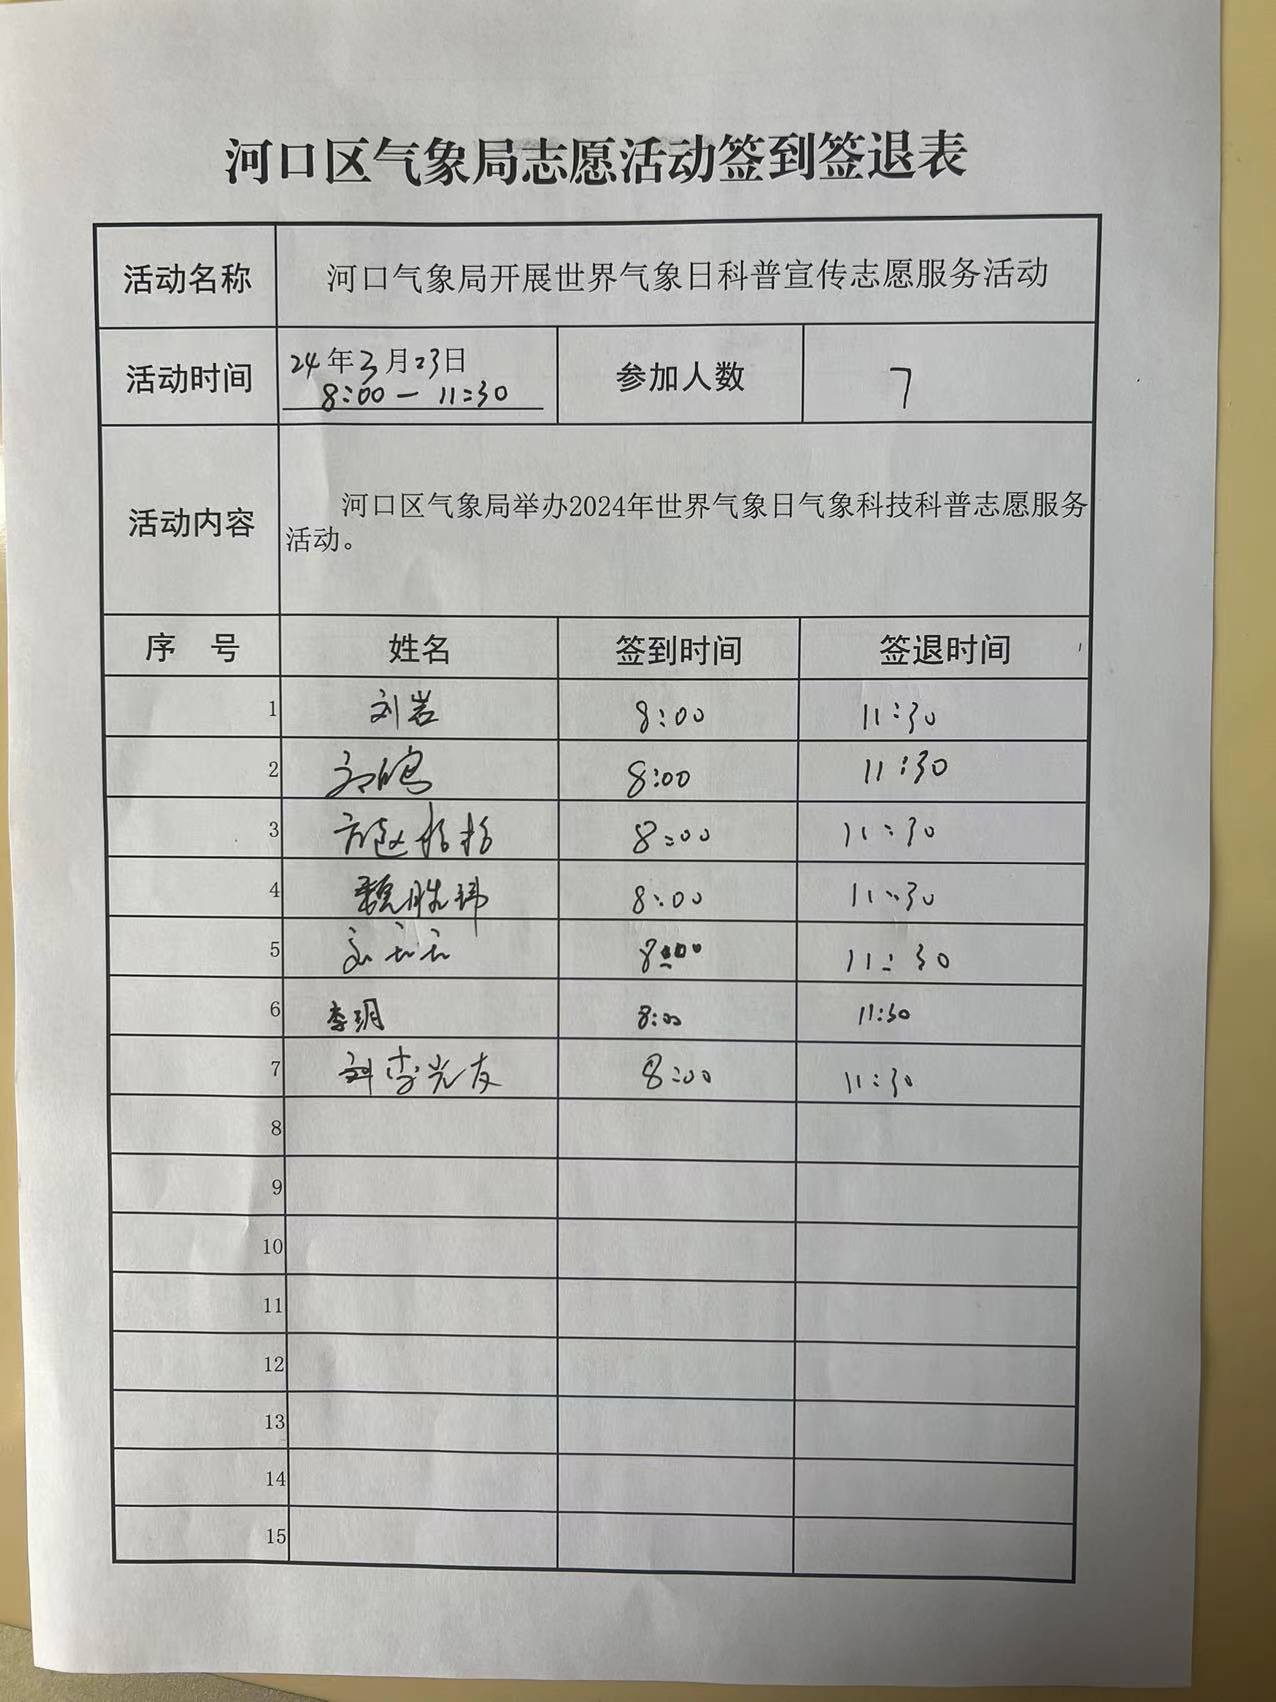 河口区气象局志愿活动签到签退表
活动名称 河口气象局开展世界气象日科普宣传志愿服务活动
活动时间 24年3月23日 参加人数 7
8:00 — 11:30
活动内容 河口区气象局举办2024年世界气象日气象科技科普志愿服务
活动。
序 号 姓名 签到时间 签退时间
1 刘岩 8:00 11:30
2 8:00 11:30
3 8:00 11:30
4 魏胜玮 8:00 11:30
5 8:00 11:30
6 李玥 8:00 11:30
7 刘李光友 8:00 11:30
8
9
10
11
12
13
14
15